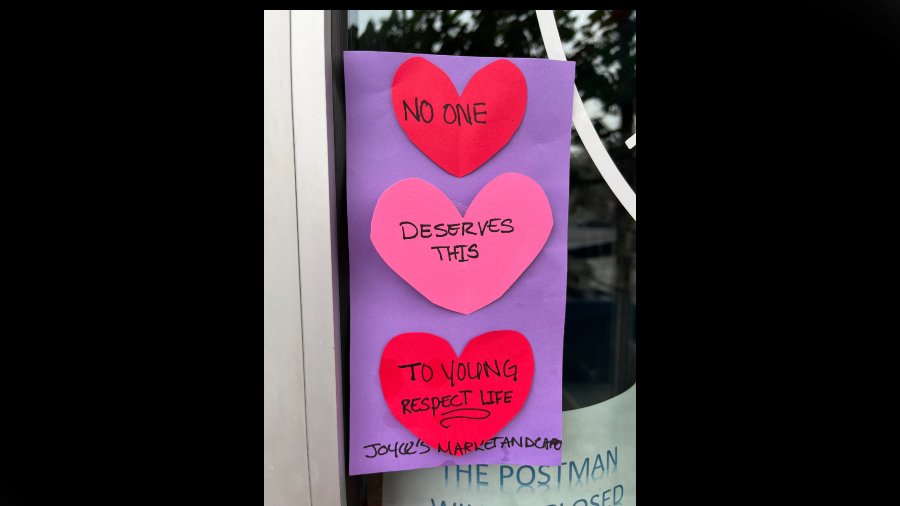 NO ONE
DESERVES
THIS
TO YOUNG
RESPECT LIFE
JOYCE'S MARKETANDCAFE
THE POSTMAN
CLOSED